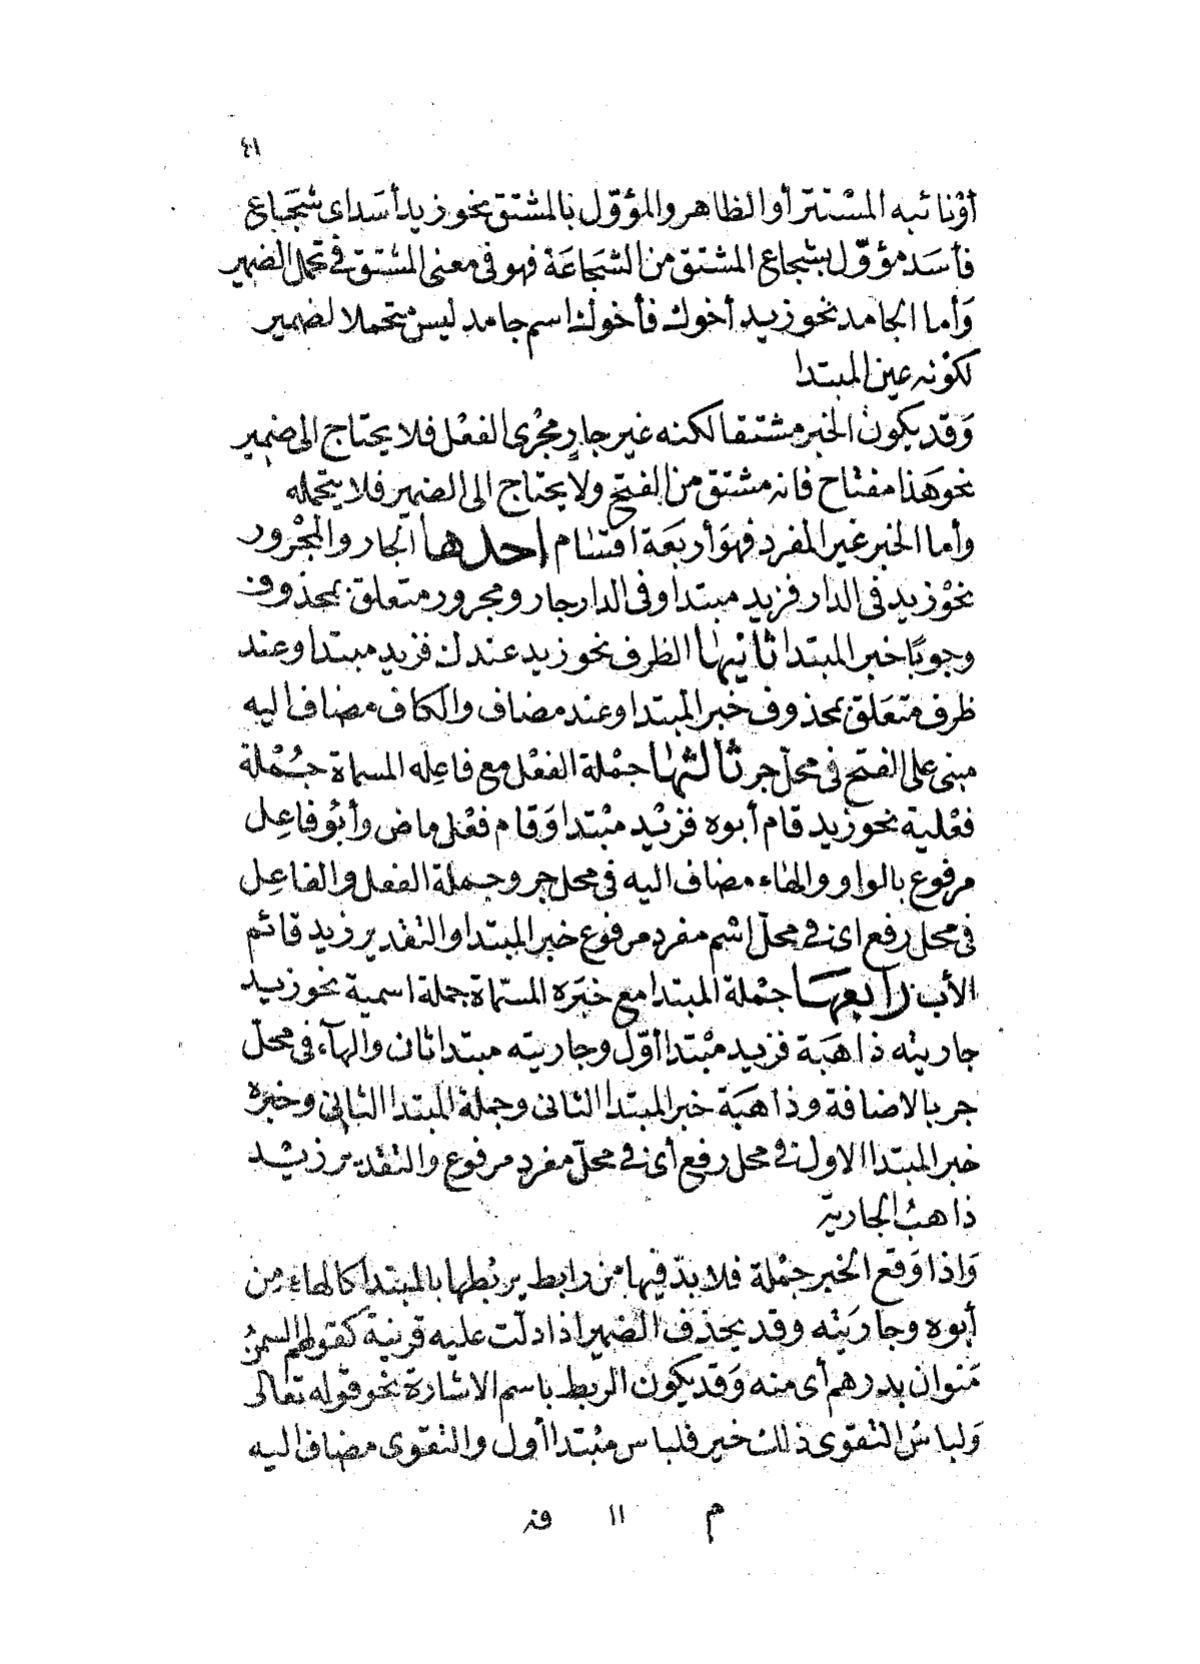 ٤١
أوْنائبه المسْتتر أو الظاهر والمؤوّل بالمشتق نحو زيد أسَد اى شجَاع
فأسَد مؤوّل بشجاع المشتق من الشجَاعَة فهو فى معنى المشتق فى تحمل الضمير
وَأما الجامد نحو زيد أخوك فأخوك اسم جامد ليس متحملا لضمير
لكوْنه عين المبتدا
وَقد يكون الخبر مشتقا لكنه غير جارٍ مجْرى الفعْل فلا يحتاج الى ضمير
نحوَ هَذا مفتاح فانه مشتق من الفتح ولا يحتاج الى الضمير فلا يتحمله
وأما الخبر غير المفرد فهوَ أربَعَة اقسَام احدها الجار والمجْرور
نحوْ زيد فى الدار فزيد مبتدا وفى الدار جار ومجرور متعلق بمحذوف
وجوبًا خبر المبتدا ثانيها الظرف نحو زيد عندك فزيد مبتدا وعند
ظرف متعَلق بمحذوف خبر المبتدا وعند مضاف والكاف مضاف اليه
مبنى على الفتح فى محلّ جر ثالثها جمْلة الفعْل مع فاعِله المسماة جُمْلة
فعْلية نحو زيد قام أبوه فزيْد مبْتدا وَقام فعْل ماض وأبُو فاعِل
مرفوع بالواو والهاء مضاف اليه فى محل جر وجملة الفعل والفاعِل
فى محل رفع اى فى محلّ اسْم مفردٍ مرفوع خبر المبتدا والتقدير زيد قائم
الأب رابعها جمْلة المبتدا مع خبَره المسمّاة جملة اسمية نحو زيد
جاريته ذاهَبة فزيد مبْتدا أوّل وجاريته مبتدا ثان والهآء فى محلّ
جر بالاضافة وذاهبَة خبر المبتدا الثانى وجملة المبتدا الثانى وخبره
خبر المبتدا الاول فى محل رفع أى فى محلّ مفردٍ مرفوع والتقدير زيْد
ذاهبُ الجارية
وَاذا وَقع الخبر جمْلة فلا بدّ فيها من رابط يربْطها بالمبتدا كالهاء من
أبوه وجاريَته وقد يحذف الضمير اذا دلت عليه قرينة كقولهم السمنُ
مَنوان بدرهم أى منه وَقد يكون الربط باسم الاشارة نحو قوله تعَالى
وَلباسُ التقوى ذلك خير فلباس مبْتدا أول والتقوى مضاف اليه
م ١١ فة